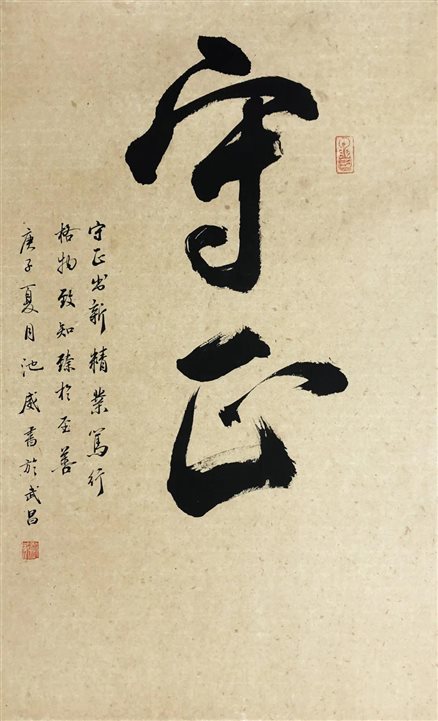 守正
守正出新精業篤行
格物致知臻於至善
庚子夏月池威書於武昌